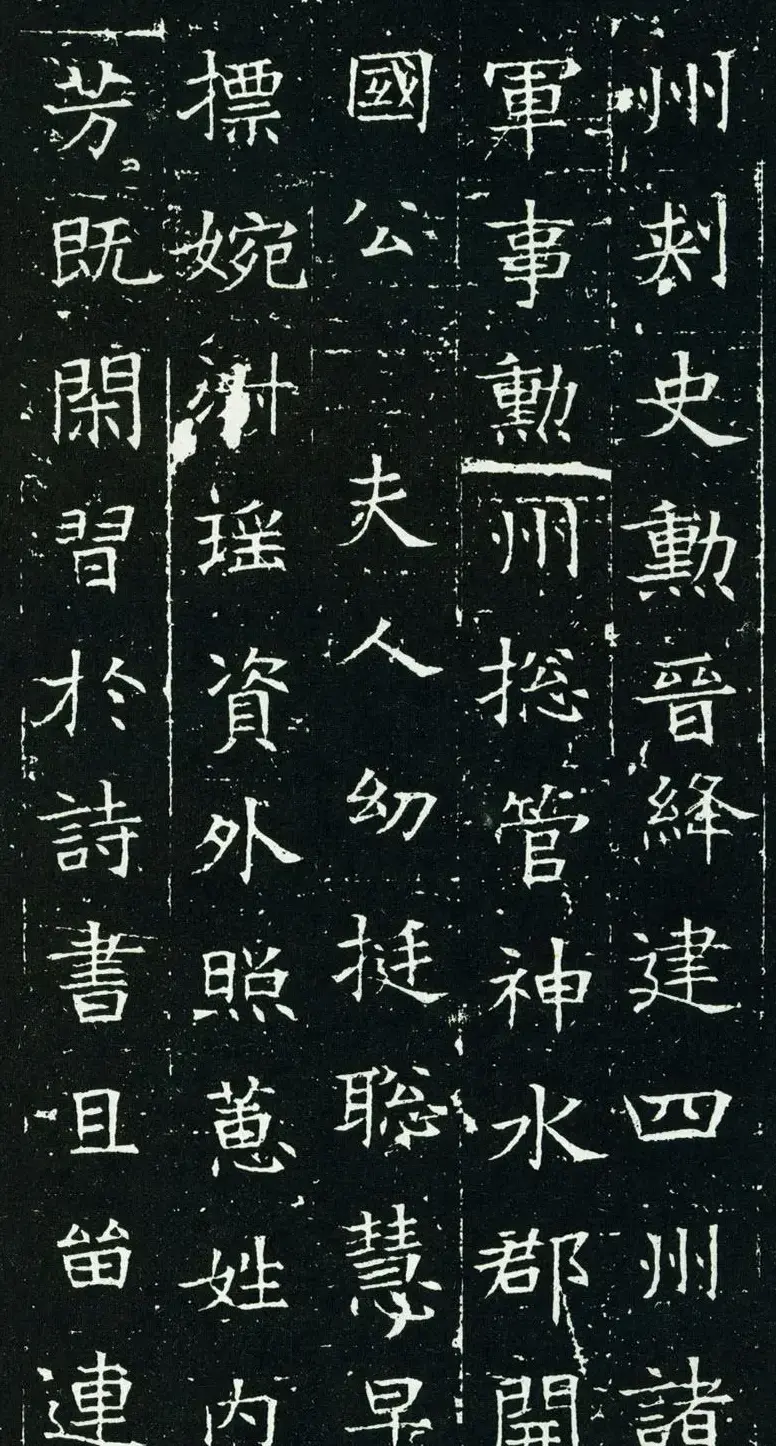 州刾史勲晉絳建四州諸
軍事勲州捴管神水郡開
國公 夫人幼挺聡慧早
摽婉瑶資外照蕙姓内
芳既閑習於詩書且留連